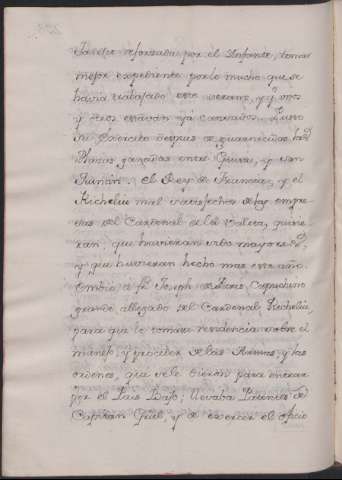 reforzada por el Infante, tomar
mejor expediente por lo mucho que se
havia trabajado este verano, y q unos
y otros estavan ya cansados. Puso
su Exercito despues de guarnecidas las
Plazas ganadas entre Guisa, y San
Quintin. El Rey de Francia, y el
Richeliu mal satisfechos de las empre
sas del Cardenal de la Valeta, quisie
ran, que huvieran sido mayores,
y que huvieran hecho mas este año.
Embió a fr Joseph de Paris Capuchino
grande allegado del Cardenal Richeliu,
para que le tomara residencia sobre el
manejo, y proceder de las Armas, y las
ordenes, que se le dieron para entrar
por el Pais Bajo; llevaba Patentes de
Capitan Gral, y de exercer el oficio